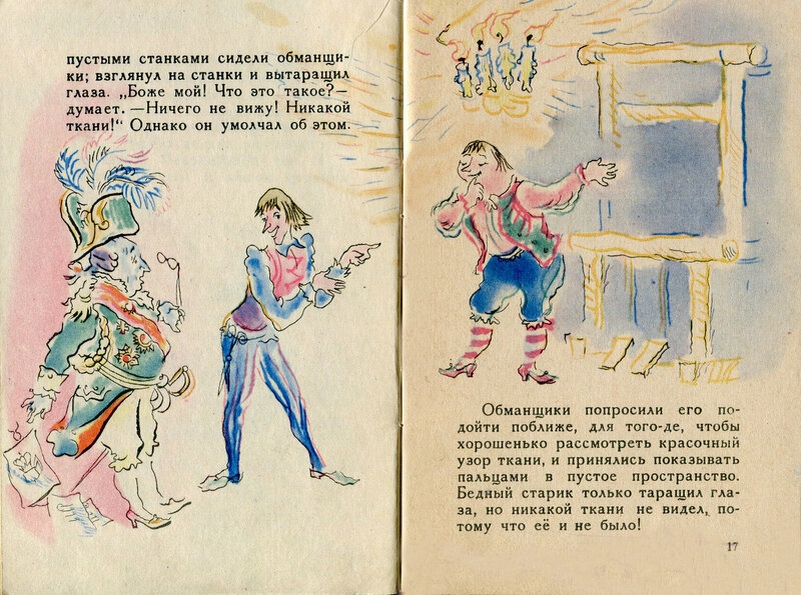 пустыми станками сидели обманщи-
ки; взглянул на станки и вытаращил
глаза. „Боже мой! Что это такое?—
думает. —Ничего не вижу! Никакой
ткани!“ Однако он умолчал об этом.
Обманщики попросили его по-
дойти поближе, для того-де, чтобы
хорошенько рассмотреть красочный
узор ткани, и принялись показывать
пальцами в пустое пространство.
Бедный старик только таращил гла-
за, но никакой ткани не видел, по-
тому что её и не было!
17